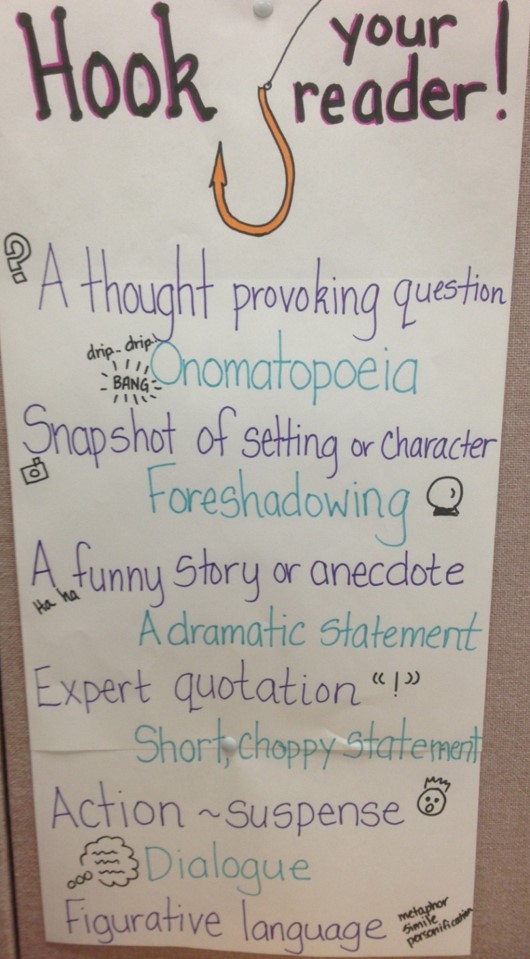 Hook your reader!
A thought provoking question
drip-drip
BANG
Onomatopoeia
Snapshot of setting or Character
Foreshadowing
A funny Story or anecdote
Ha ha
A dramatic Statement
Expert quotation “!”
Short, choppy Statement
Action ~suspense
Dialogue
Figurative language
metaphor
simile
personification